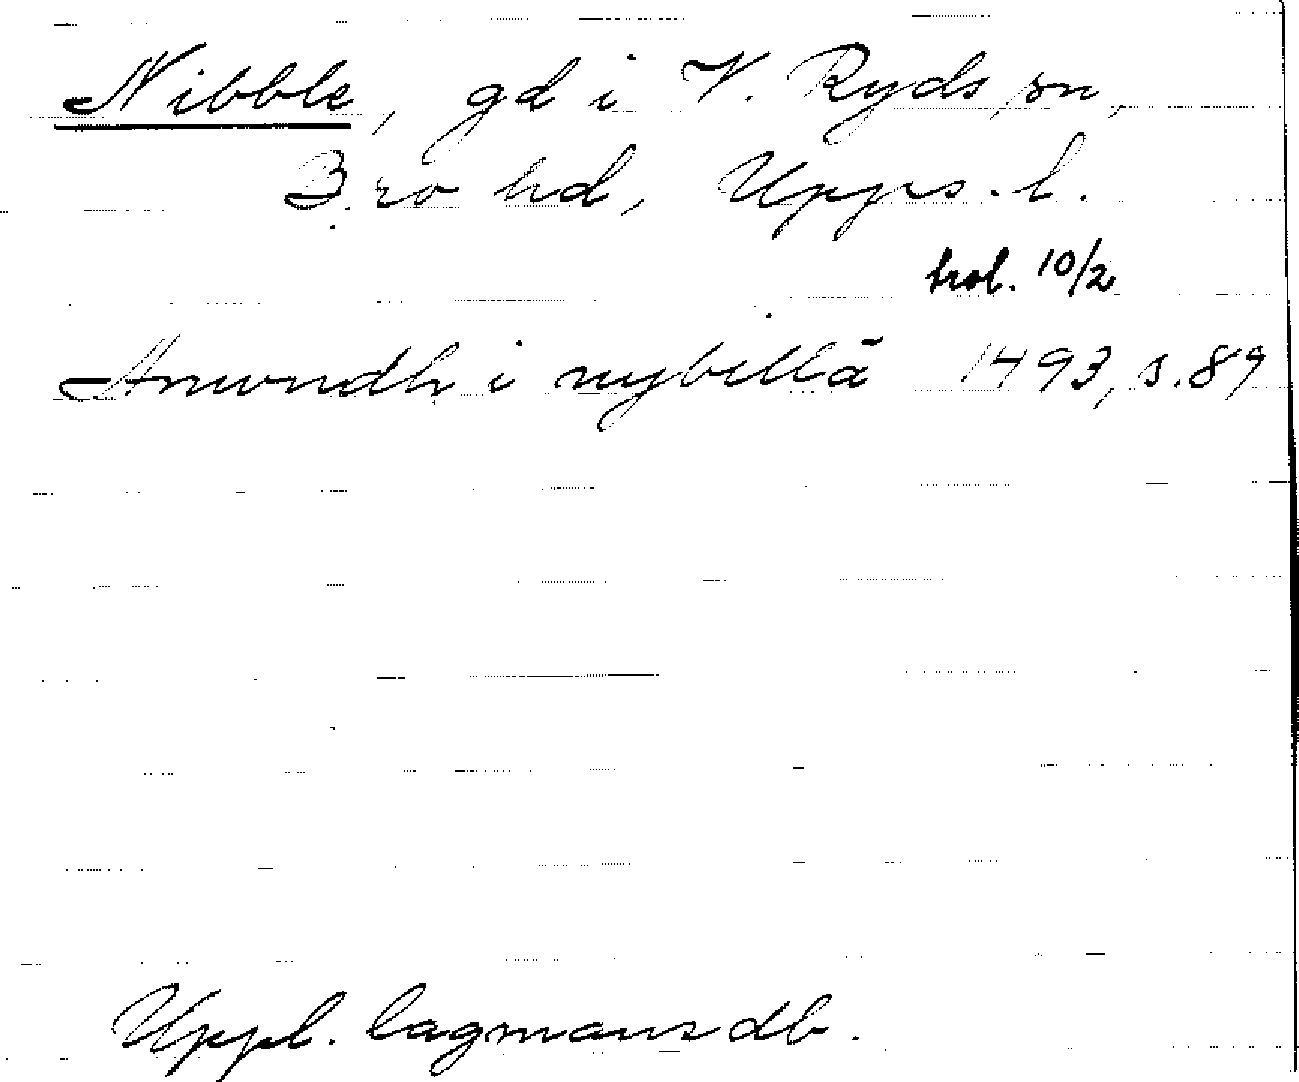 Nibble, gd i V. Ryds sn,
Bro hd, Upps. l.
trol. 10/2
Anwndh i nybillä 1493, s. 89
Uppl. lagmansdb.